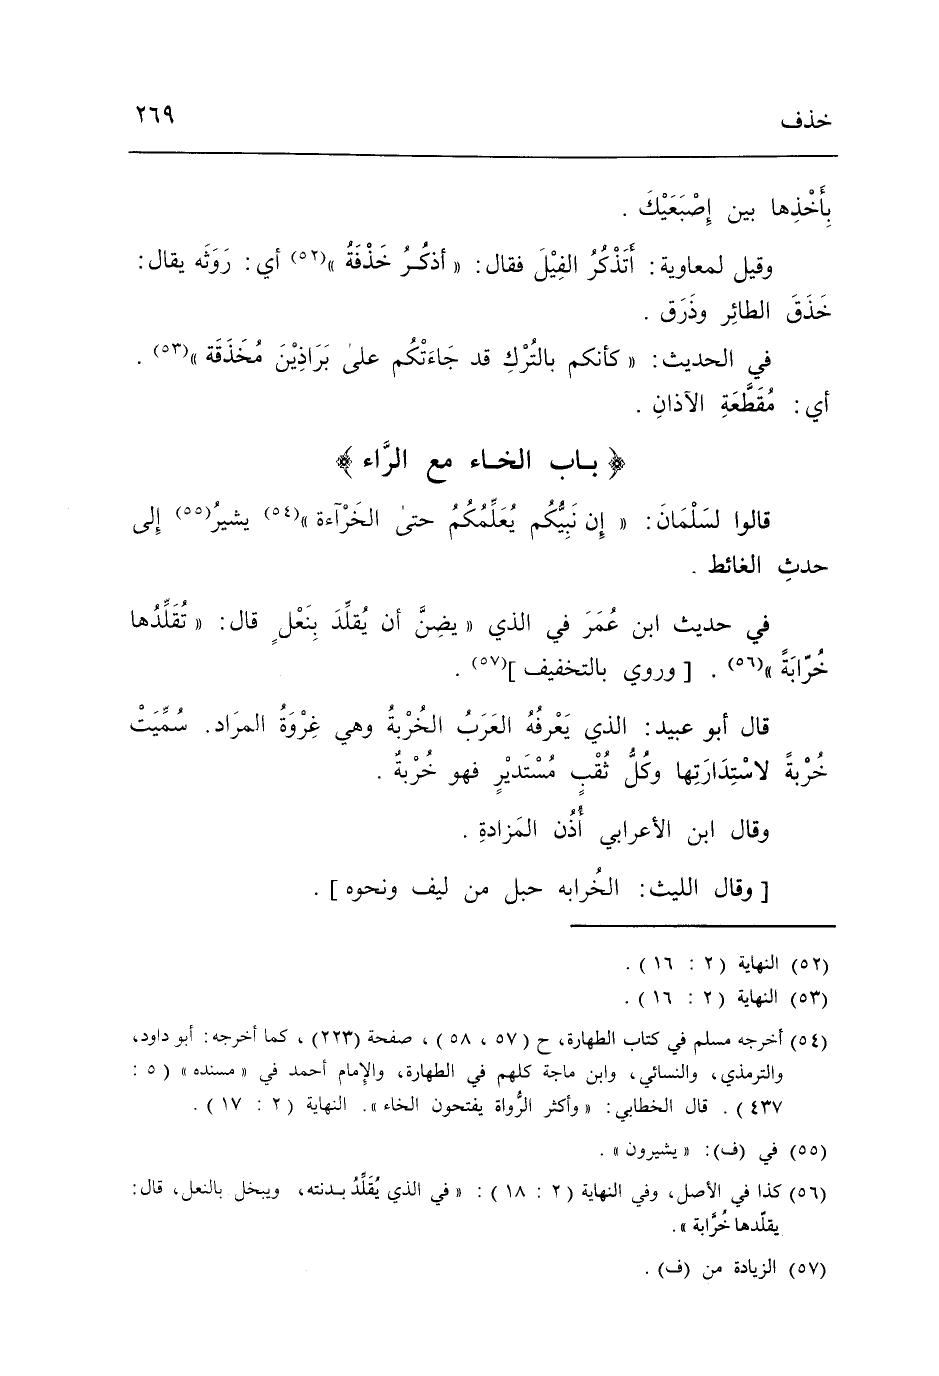 خذف ٢٦٩
بِأَخْذِها بين إِصْبَعَيْكَ .
وقيل لمعاوية : أَتَذْكُرُ الفِيْلَ فقال : « أذكُـرُ خَذْقَةُ »(٥٢) أي : رَوَثَه يقال :
خَذَقَ الطائِر وذَرَق .
في الحديث : « كأنكم بالتُرْكِ قد جَاءَتْكُم علىٰ بَرَاذِيْنَ مُخَذَقَة »(٥٣) .
أي : مُقَطَّعَةِ الآذانِ .
﴿ بـاب الخـاء مع الرَّاء ﴾
قالوا لسَلْمَانَ : « إِن نَبِيُّكُم يُعَلِّمُكُمُ حتىٰ الخَرْآءة »(٥٤) يشيرُ(٥٥) إِلى
حدثِ الغائط .
في حديث ابن عُمَرَ في الذي « يضِنَّ أن يُقلِّدَ بِنَعْلٍ قال : « تُقَلِّدُها
خُرّابَةً »(٥٦) . [ وروي بالتخفيف ](٥٧) .
قال أبو عبيد : الذي يَعْرفُهُ العَرَبُ الخُرْبةُ وهي عِرْوَةُ المرَاد . سُمِّيَتْ
خُرْبةً لاسْتِدَارَتِها وكُلُّ ثُقْبٍ مُسْتَديْرٍ فهو خُرْبةٌ .
وقال ابن الأعرابي أُذُن المَزادةِ .
[ وقال الليث : الخُرابه حبل من ليف ونحوه ] .
(٥٢) النهاية ( ٢ : ١٦ ) .
(٥٣) النهاية ( ٢ : ١٦ ) .
(٥٤) أخرجه مسلم في كتاب الطهارة، ح ( ٥٧ ، ٥٨ ) ، صفحة (٢٢٣) ، كما أخرجه : أبو داود،
والترمذي، والنسائي، وابن ماجة كلهم في الطهارة، والإمام أحمد في « مسنده » ( ٥ :
٤٣٧ ) . قال الخطابي : « وأكثر الرُّواة يفتحون الخاء » . النهاية ( ٢ : ١٧ ) .
(٥٥) في (ف) : « يشيرون » .
(٥٦) كذا في الأصل، وفي النهاية ( ٢ : ١٨ ) : « في الذي يُقَلِّدُ بـدنته، ويبخل بالنعل، قال :
يقلّدها خُرَّابة » .
(٥٧) الزيادة من (ف) .